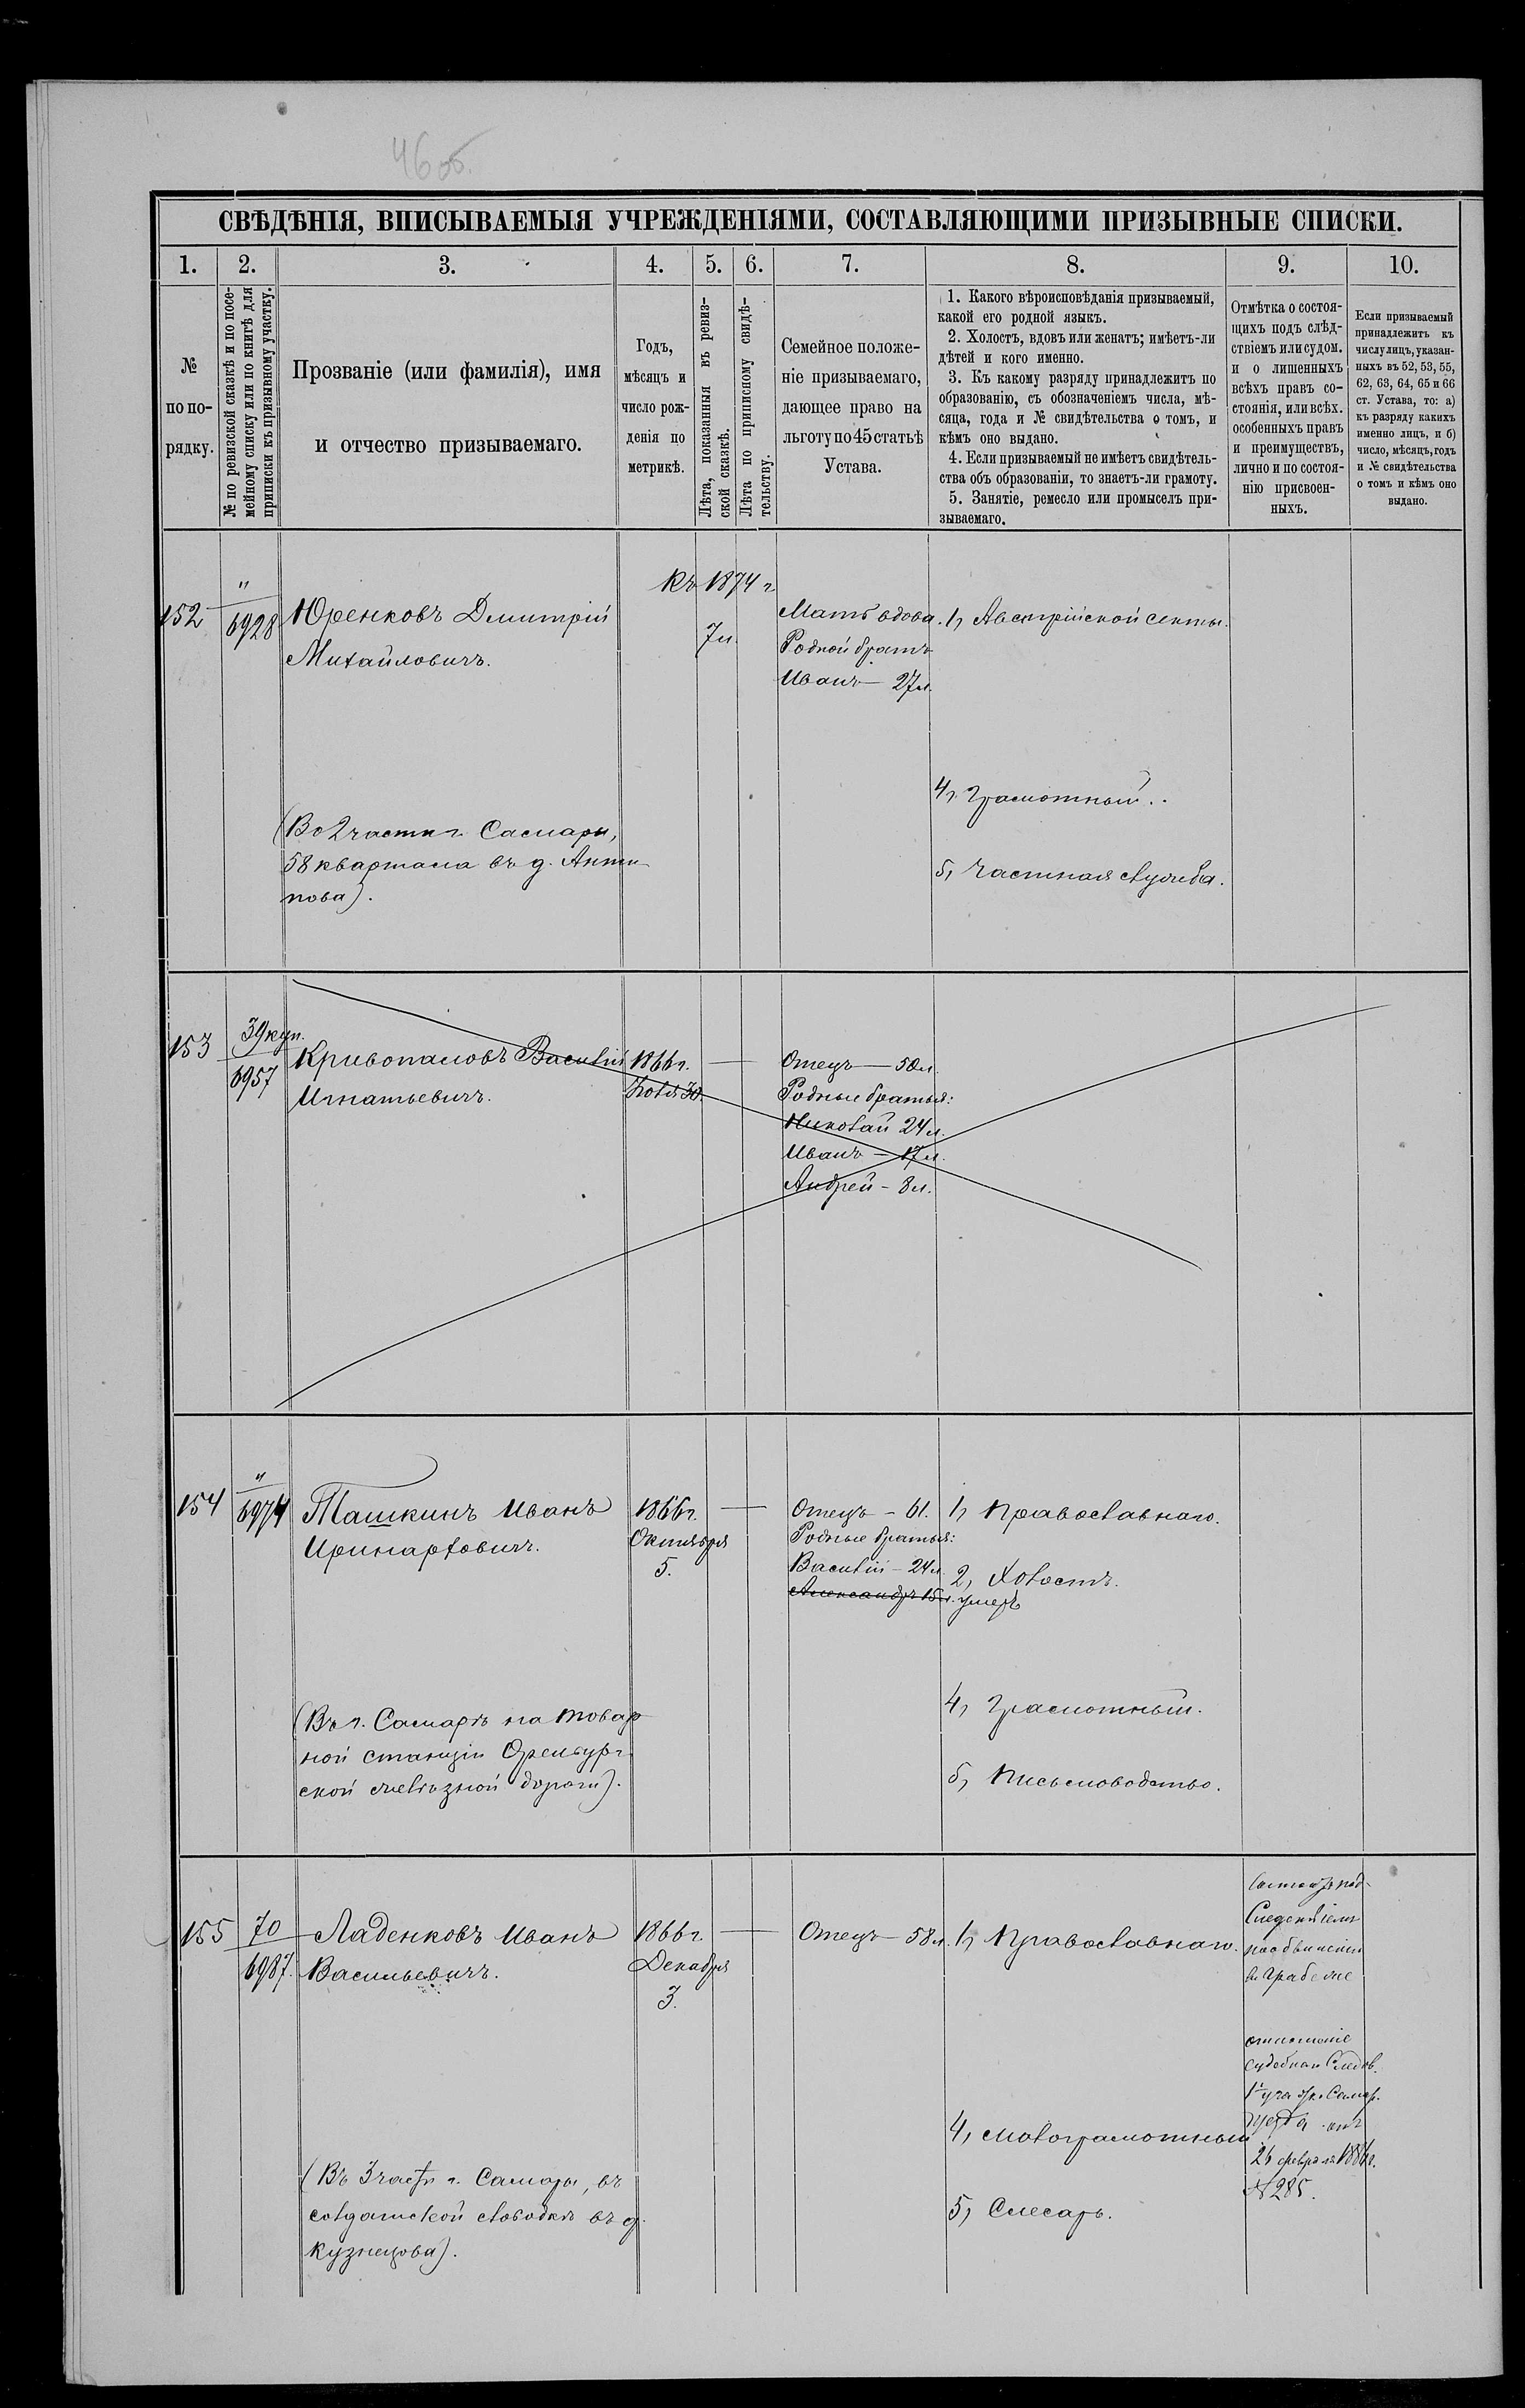 46об.
СВѢДѢНІЯ, ВПИСЫВАЕМЫЯ УЧРЕЖДЕНІЯМИ, СОСТАВЛЯЮЩИМИ ПРИЗЫВНЫЕ СПИСКИ.
1.
2.
3.
4.
5.
6.
7.
8.
9.
10.
№
по по-
рядку.
№ по ревизской сказкѣ и по посе-
мейному списку или по книгѣ для
приписки къ призывному участку.
Прозваніе (или фамилія), имя
и отчество призываемаго.
Годъ,
мѣсяцъ и
число рож-
денія по
метрикѣ.
Лѣта, показанныя въ ревиз-
ской сказкѣ.
Лѣта по приписному свидѣ-
тельству.
Семейное положе-
ніе призываемаго,
дающее право на
льготу по 45 статьѣ
Устава.
1. Какого вѣроисповѣданія призываемый,
какой его родной языкъ.
2. Холостъ, вдовъ или женатъ; имѣетъ-ли
дѣтей и кого именно.
3. Къ какому разряду принадлежитъ по
образованію, съ обозначеніемъ числа, мѣ-
сяца, года и № свидѣтельства о томъ, и
кѣмъ оно выдано.
4. Если призываемый не имѣетъ свидѣтель-
ства объ образованіи, то знаетъ-ли грамоту.
5. Занятіе, ремесло или промыселъ при-
зываемаго.
Отмѣтка о состоя-
щихъ подъ слѣд-
ствіемъ или судом.
и о лишенныхъ
всѣхъ правъ со-
стоянія, или всѣх.
особенныхъ правъ
и преимуществъ,
лично и по состоя-
нію присвоен-
ныхъ.
Если призываемый
принадлежитъ къ
числу лицъ, указан-
ныхъ въ 52, 53, 55,
62, 63, 64, 65 и 66
ст. Устава, то: а)
къ разряду какихъ
именно лицъ, и б)
число, мѣсяцъ, годъ
и № свидѣтельства
о томъ и кѣмъ оно
выдано.
152
"
6928
Юренковъ Дмитрій
Михайловичъ.
Къ 1874 г
7л.
Мать вдова.
Родной братъ
Иванъ — 27л.
1, Австрійской секты.
4, Грамотный.
5, Частная служба.
(Во 2 части г. Самары,
58 квартала въ д. Анти-
пова).
153
39 куп.
6957
Кривопаловъ Василій
Игнатьевичъ.
1866 г.
Іюля 30.
Отецъ — 50л.
Родные братья:
Николай 24л.
Иванъ — 17л.
Андрей — 8л.
154
"
6974
Ташкинъ Иванъ
Иринарховичъ.
1866 г.
Октября
5.
Отецъ — 61.
Родные братья:
Василій — 24л.
Александръ 15л. умеръ
1, Православнаго.
2, Холостъ.
4, Грамотный.
5, Письмоводство.
(Въ г. Самарѣ на товар-
ной станціи Оренбург-
ской желѣзной дороги).
155
70
6987.
Ладенковъ Иванъ
Васильевичъ.
1866 г.
Декабря
3.
Отецъ — 58л.
1, Православнаго.
4, малограмотный
5, Слесарь.
(Въ 3 части г. Самары, въ
солдатской слободкѣ въ д.
Кузнецова).
Состоитъ под
Следствіемъ
по обвиненію
въ грабеже
отношеніе
судебнаго Следов.
1 уча. Самар.
уезда от
26 февраля 1886.
№ 285.